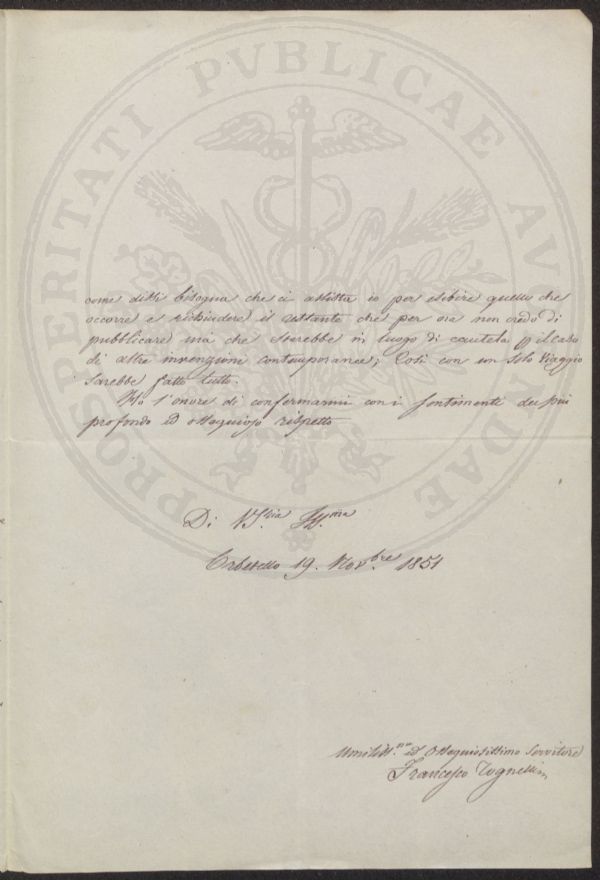 PROSPERITATI PVBLICAE AVGENDAE
come dissi bisogna che ci assista io per esibire quello che
occorre e richiudere il restante che per ora non credo di
pubblicare ma che starebbe in luogo di cautela p il caso
di altre invenzioni contemporanee; Così con un solo Viaggio
sarebbe fatto tutto.
Ho l'onore di confermarmi con i sentimenti del più
profondo ed ossequioso rispetto
Di V.S.ria Ill.ma
Orbetello 19. Nov.bre 1851
Umiliss.mo ed Ossequiosissimo Servitore
Francesco